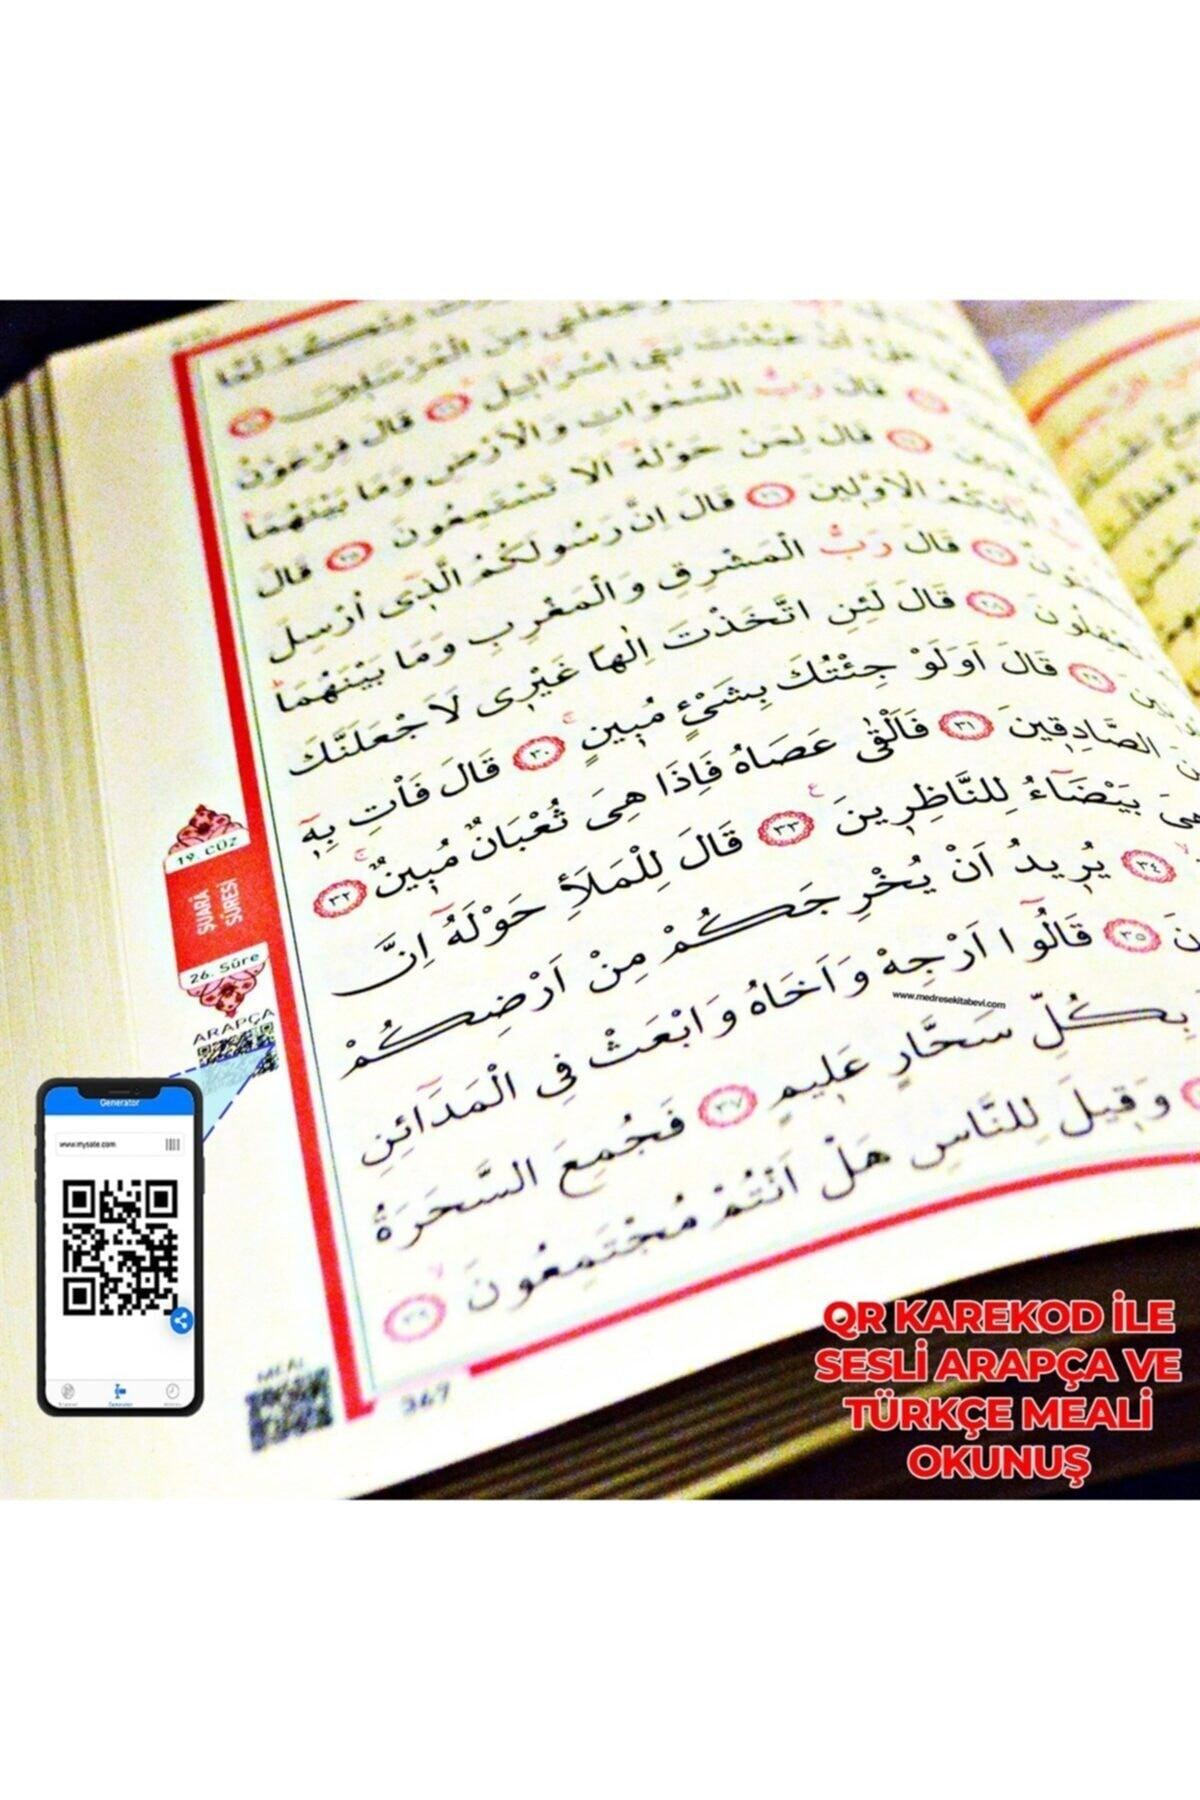 لَمَّا
مِنَ الْمُرْسَلِينَ
بَنِي اِسْرَائِلَ قَالَ فِرْعَوْنُ
قَالَ رَبُّ السَّمٰوَاتِ وَالْاَرْضِ وَمَا بَيْنَهُمَا
قَالَ لِمَنْ حَوْلَهُ اَلَا تَسْتَمِعُونَ ٢٥ قَالَ
اٰبَائِكُمُ الْاَوَّلِينَ ٢٦ قَالَ اِنَّ رَسُولَكُمُ الَّذِى اُرْسِلَ
٢٧ قَالَ رَبُّ الْمَشْرِقِ وَالْمَغْرِبِ وَمَا بَيْنَهُمَا
تَعْقِلُونَ ٢٨ قَالَ لَئِنِ اتَّخَذْتَ اِلٰهًا غَيْرِى لَاَجْعَلَنَّكَ
٢٩ قَالَ اَوَلَوْ جِئْتُكَ بِشَىْءٍ مُبِينٍ ٣٠ قَالَ فَاْتِ بِهٓ
الصَّادِقِينَ ٣١ فَاَلْقٰى عَصَاهُ فَاِذَا هِىَ ثُعْبَانٌ مُبِينٌ ٣٢
هِىَ بَيْضَٓاءُ لِلنَّاظِرِينَ ٣٣ قَالَ لِلْمَلَاِ حَوْلَهُٓ اِنَّ
٣٤ يُرِيدُ اَنْ يُخْرِجَكُمْ مِنْ اَرْضِكُمْ
٣٥ قَالُٓوا اَرْجِهْ وَاَخَاهُ وَابْعَثْ فِى الْمَدَٓائِنِ
بِكُلِّ سَحَّارٍ عَلِيمٍ ٣٧ فَجُمِعَ السَّحَرَةُ
وَقِيلَ لِلنَّاسِ هَلْ اَنْتُمْ مُجْتَمِعُونَ ٣٩
19. CÜZ
ŞUARÂ
SÛRESİ
26. Sûre
ARAPÇA
www.medresekitabevi.com
Generator
www.mysite.com
Generator
MEAL
367
QR KAREKOD İLE
SESLİ ARAPÇA VE
TÜRKÇE MEALİ
OKUNUŞ